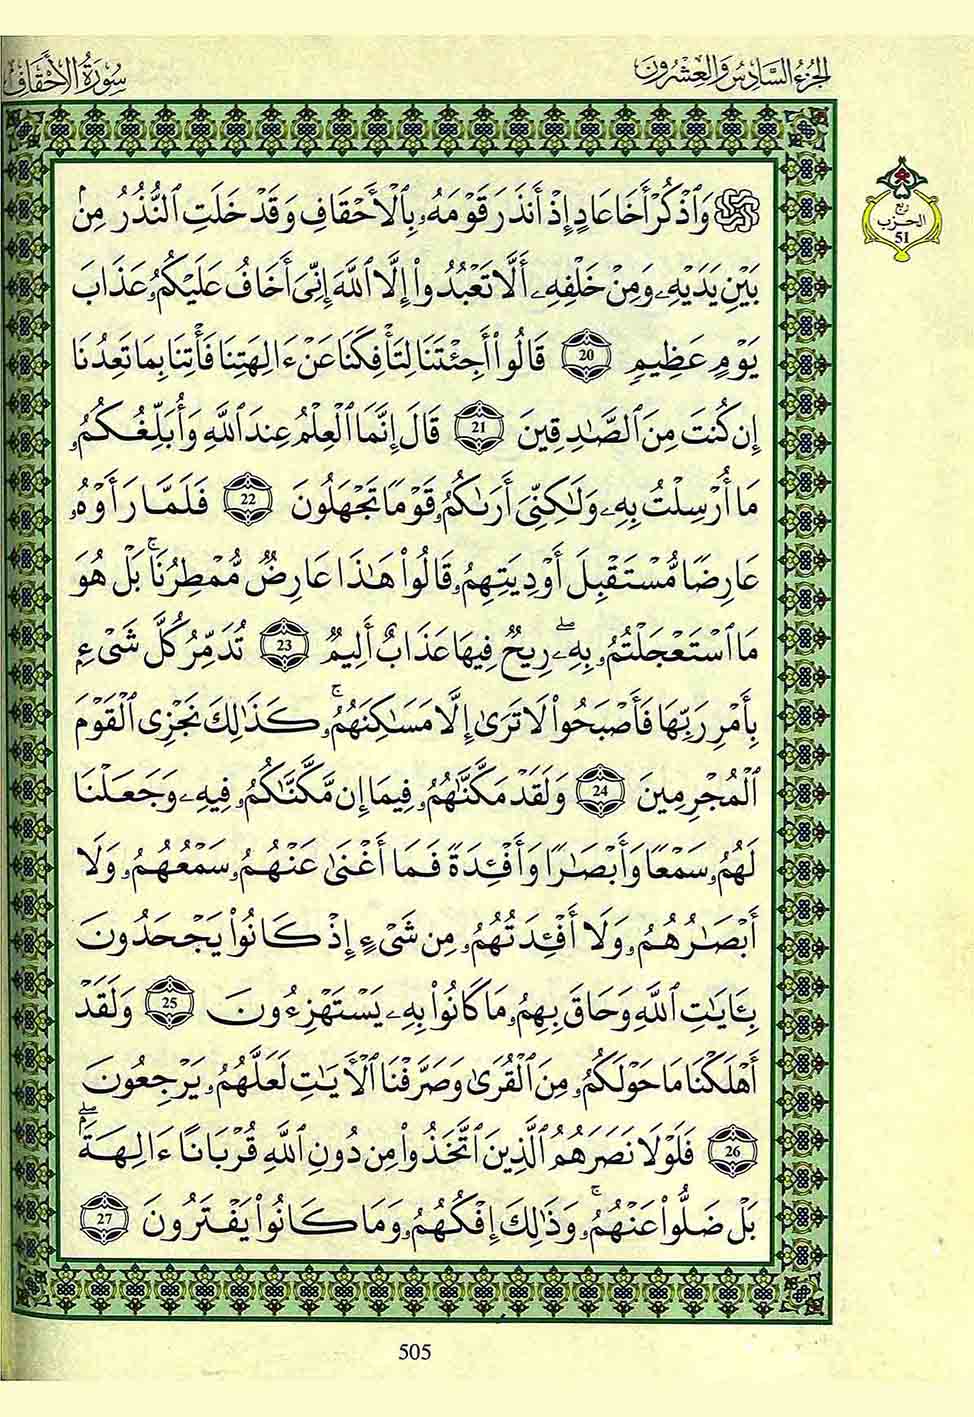 الجزء السادس والعشرون
سورة الأحقاف
ربع
الحزب
51
۞ وَٱذْكُرْ أَخَا عَادٍ إِذْ أَنذَرَ قَوْمَهُۥ بِٱلْأَحْقَافِ وَقَدْ خَلَتِ ٱلنُّذُرُ مِنۢ
بَيْنِ يَدَيْهِۦ وَمِنْ خَلْفِهِۦ أَلَّا تَعْبُدُوٓا۟ إِلَّا ٱللَّهَ إِنِّىَ أَخَافُ عَلَيْكُمُۥ عَذَابَ
يَوْمٍ عَظِيمٍ 20 قَالُوٓا۟ أَجِئْتَنَا لِتَأْفِكَنَا عَنْ ءَالِهَتِنَا فَأْتِنَا بِمَا تَعِدُنَا
إِن كُنتَ مِنَ ٱلصَّـٰدِقِينَ 21 قَالَ إِنَّمَا ٱلْعِلْمُ عِندَ ٱللَّهِ وَأُبَلِّغُكُمُۥ
مَا أُرْسِلْتُ بِهِۦ وَلَـٰكِنِّىَ أَرَىٰكُمُۥ قَوْمًا تَجْهَلُونَ 22 فَلَمَّا رَأَوْهُۥ
عَارِضًا مُّسْتَقْبِلَ أَوْدِيَتِهِمُۥ قَالُوا۟ هَـٰذَا عَارِضٌ مُّمْطِرُنَاۚ بَلْ هُوَ
مَا ٱسْتَعْجَلْتُمُۥ بِهِۦۖ رِيحٌ فِيهَا عَذَابٌ أَلِيمٌ 23 تُدَمِّرُ كُلَّ شَىْءٍۭ
بِأَمْرِ رَبِّهَا فَأَصْبَحُوا۟ لَا تَرَىٰٓ إِلَّا مَسَـٰكِنَهُمُۥۚ كَذَٰلِكَ نَجْزِى ٱلْقَوْمَ
ٱلْمُجْرِمِينَ 24 وَلَقَدْ مَكَّنَّـٰهُمُۥ فِيمَا إِن مَّكَّنَّـٰكُمُۥ فِيهِۦ وَجَعَلْنَا
لَهُمُۥ سَمْعًا وَأَبْصَـٰرًا وَأَفْـِٔدَةً فَمَا أَغْنَىٰ عَنْهُمُۥ سَمْعُهُمُۥ وَلَا
أَبْصَـٰرُهُمُۥ وَلَا أَفْـِٔدَتُهُمُۥ مِن شَىْءٍ إِذْ كَانُوا۟ يَجْحَدُونَ
بِـَٔايَـٰتِ ٱللَّهِ وَحَاقَ بِهِمُۥ مَا كَانُوا۟ بِهِۦ يَسْتَهْزِءُونَ 25 وَلَقَدْ
أَهْلَكْنَا مَا حَوْلَكُمُۥ مِنَ ٱلْقُرَىٰ وَصَرَّفْنَا ٱلْـَٔايَـٰتِ لَعَلَّهُمُۥ يَرْجِعُونَ
26 فَلَوْلَا نَصَرَهُمُ ٱلَّذِينَ ٱتَّخَذُوا۟ مِن دُونِ ٱللَّهِ قُرْبَانًا ءَالِهَةًۢۖ
بَلْ ضَلُّوا۟ عَنْهُمُۥۚ وَذَٰلِكَ إِفْكُهُمُۥ وَمَا كَانُوا۟ يَفْتَرُونَ 27
505